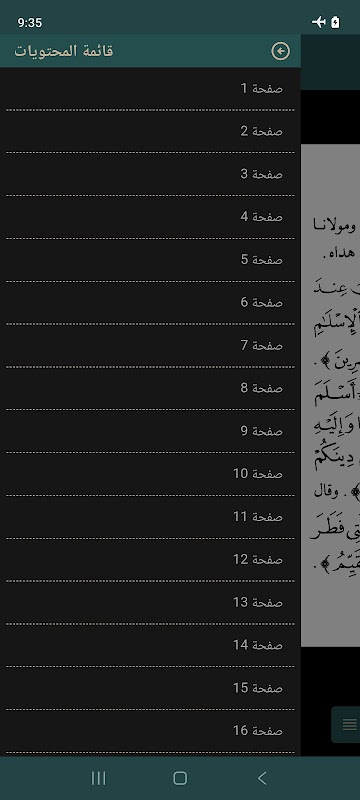 9:35
قائمة المحتويات
صفحة 1
صفحة 2
صفحة 3
صفحة 4
صفحة 5
صفحة 6
صفحة 7
صفحة 8
صفحة 9
صفحة 10
صفحة 11
صفحة 12
صفحة 13
صفحة 14
صفحة 15
صفحة 16
ومولانا
هداه.
عِندَ
ٱلْإِسْلَٰمِ
أَسْلَمَ
وَإِلَيْهِ
دِينَكُمْ
﴾. وقال
فَطَرَ
﴾.